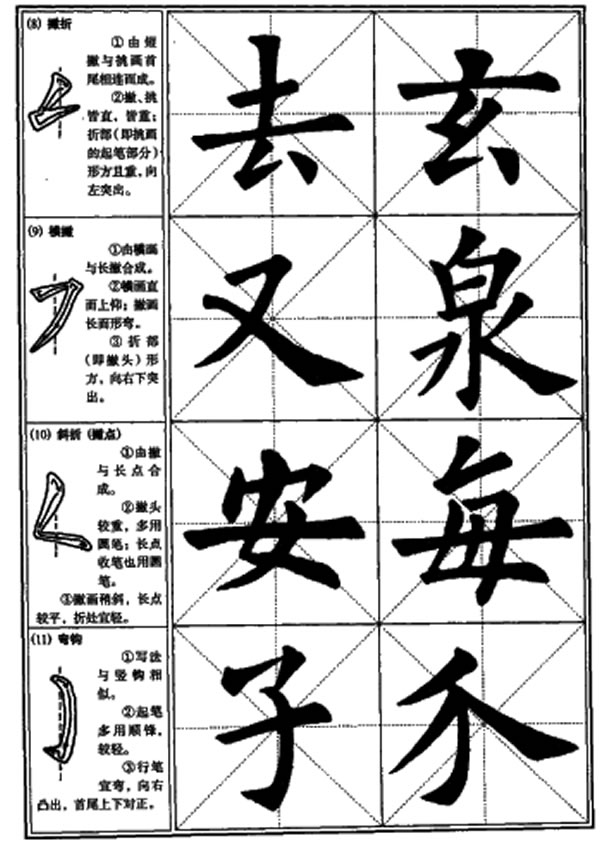 (8) 撇折
①由短
撇与挑画首
尾相连而成。
②撇、挑
皆直,皆重;
折部(即挑画
的起笔部分)
形方且重,向
左突出。
去 玄
(9) 横撇
①由横画
与长撇合成。
②横画直
而上仰;撇画
长而形弯。
③折部
(即撇头)形
方,向右下突
出。
又 泉
(10) 斜折 (撇点)
①由撇
与长点合
成。
②撇头
较重,多用
圆笔;长点
收笔也用圆
笔。
③撇画稍斜,长点
较平,折处宜轻。
安 每
(11) 弯钩
①写法
与竖钩相
似。
②起笔
多用顺锋,
较轻。
③行笔
宜弯,向右
凸出,首尾上下对正。
子